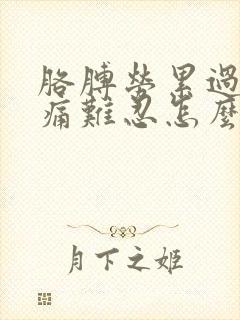 胳膊勞累過
痛難忍怎麼
月下之姬